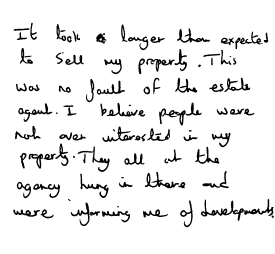 It took longer than expected
to sell my property. This
was no fault of the estate
agent. I believe people were
not even interested in my
property. They all at the
agency hung in there and
were informing me of developments.